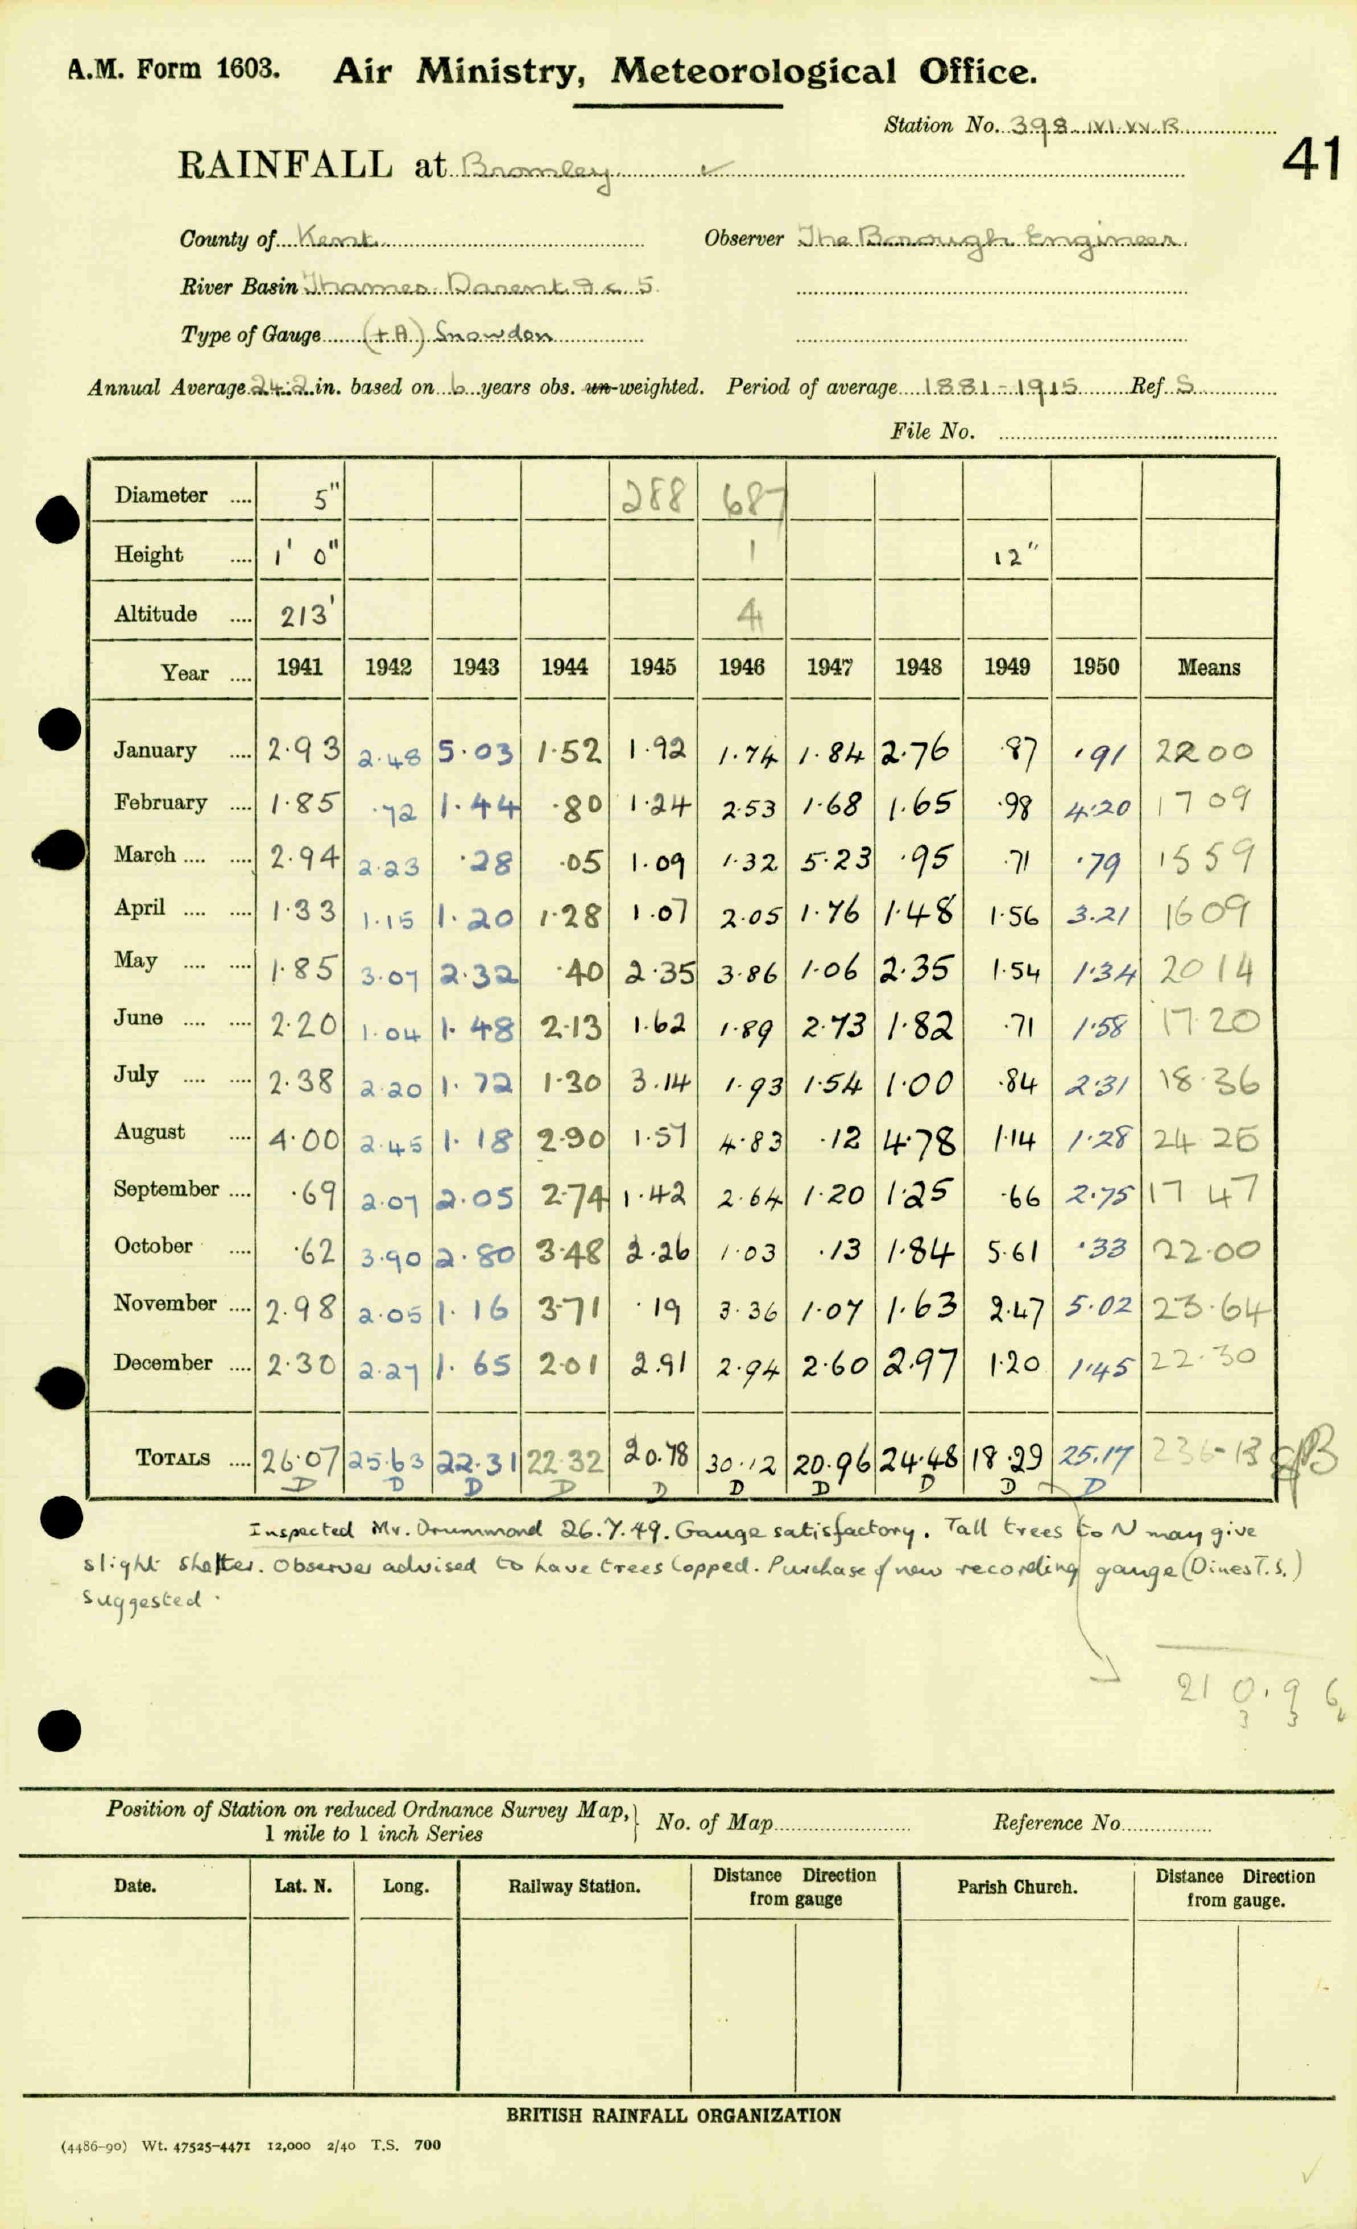 A.M. Form 1603. Air Ministry, Meteorological Office.
Station No. 398
41
RAINFALL at Bromley ✓
County of Kent Observer The Borough Engineer.
River Basin Thames. Darent & c. 5.
Type of Gauge (+A) Snowdon
Annual Average 24.2 in. based on 6 years obs. un-weighted. Period of average 1881-1915 Ref. S
File No.
Diameter .... 5" 288 687
Height .... 1' 0" 1 12"
Altitude .... 213' 4
Year .... 1941 1942 1943 1944 1945 1946 1947 1948 1949 1950 Means
January .... 2.93 2.48 5.03 1.52 1.92 1.74 1.84 2.76 .87 .91 2200
February .... 1.85 .72 1.44 .80 1.24 2.53 1.68 1.65 .98 4.20 1709
March .... .... 2.94 2.23 .28 .05 1.09 1.32 5.23 .95 .71 .79 1559
April .... .... 1.33 1.15 1.20 1.28 1.07 2.05 1.76 1.48 1.56 3.21 1609
May .... .... 1.85 3.07 2.32 .40 2.35 3.86 1.06 2.35 1.54 1.34 2014
June .... .... 2.20 1.04 1.48 2.13 1.62 1.89 2.73 1.82 .71 1.58 17.20
July .... .... 2.38 2.20 1.72 1.30 3.14 1.93 1.54 1.00 .84 2.31 18.36
August .... 4.00 2.45 1.18 2.90 1.57 4.83 .12 4.78 1.14 1.28 24 25
September .... .69 2.07 2.05 2.74 1.42 2.64 1.20 1.25 .66 2.75 17 47
October .... .62 3.90 2.80 3.48 2.26 1.03 .13 1.84 5.61 .33 22.00
November .... 2.98 2.05 1.16 3.71 .19 3.36 1.07 1.63 2.47 5.02 23.64
December .... 2.30 2.27 1.65 2.01 2.91 2.94 2.60 2.97 1.20 1.45 22.30
TOTALS .... 26.07 25.63 22.31 22.32 20.78 30.12 20.96 24.48 18.29 25.17 236-13
D D D D D D D D D D
Inspected Mr. Drummond 26.7.49. Gauge satisfactory. Tall trees to N may give
slight shelter. Observer advised to have trees lopped. Purchase of new recording gauge (Dines T.S.)
suggested.
210.96
3 3
Position of Station on reduced Ordnance Survey Map, No. of Map Reference No
1 mile to 1 inch Series
Date. Lat. N. Long. Railway Station. Distance Direction from gauge Parish Church. Distance Direction from gauge.
BRITISH RAINFALL ORGANIZATION
(4486-90) Wt. 47525-4471 12,000 2/40 T.S. 700